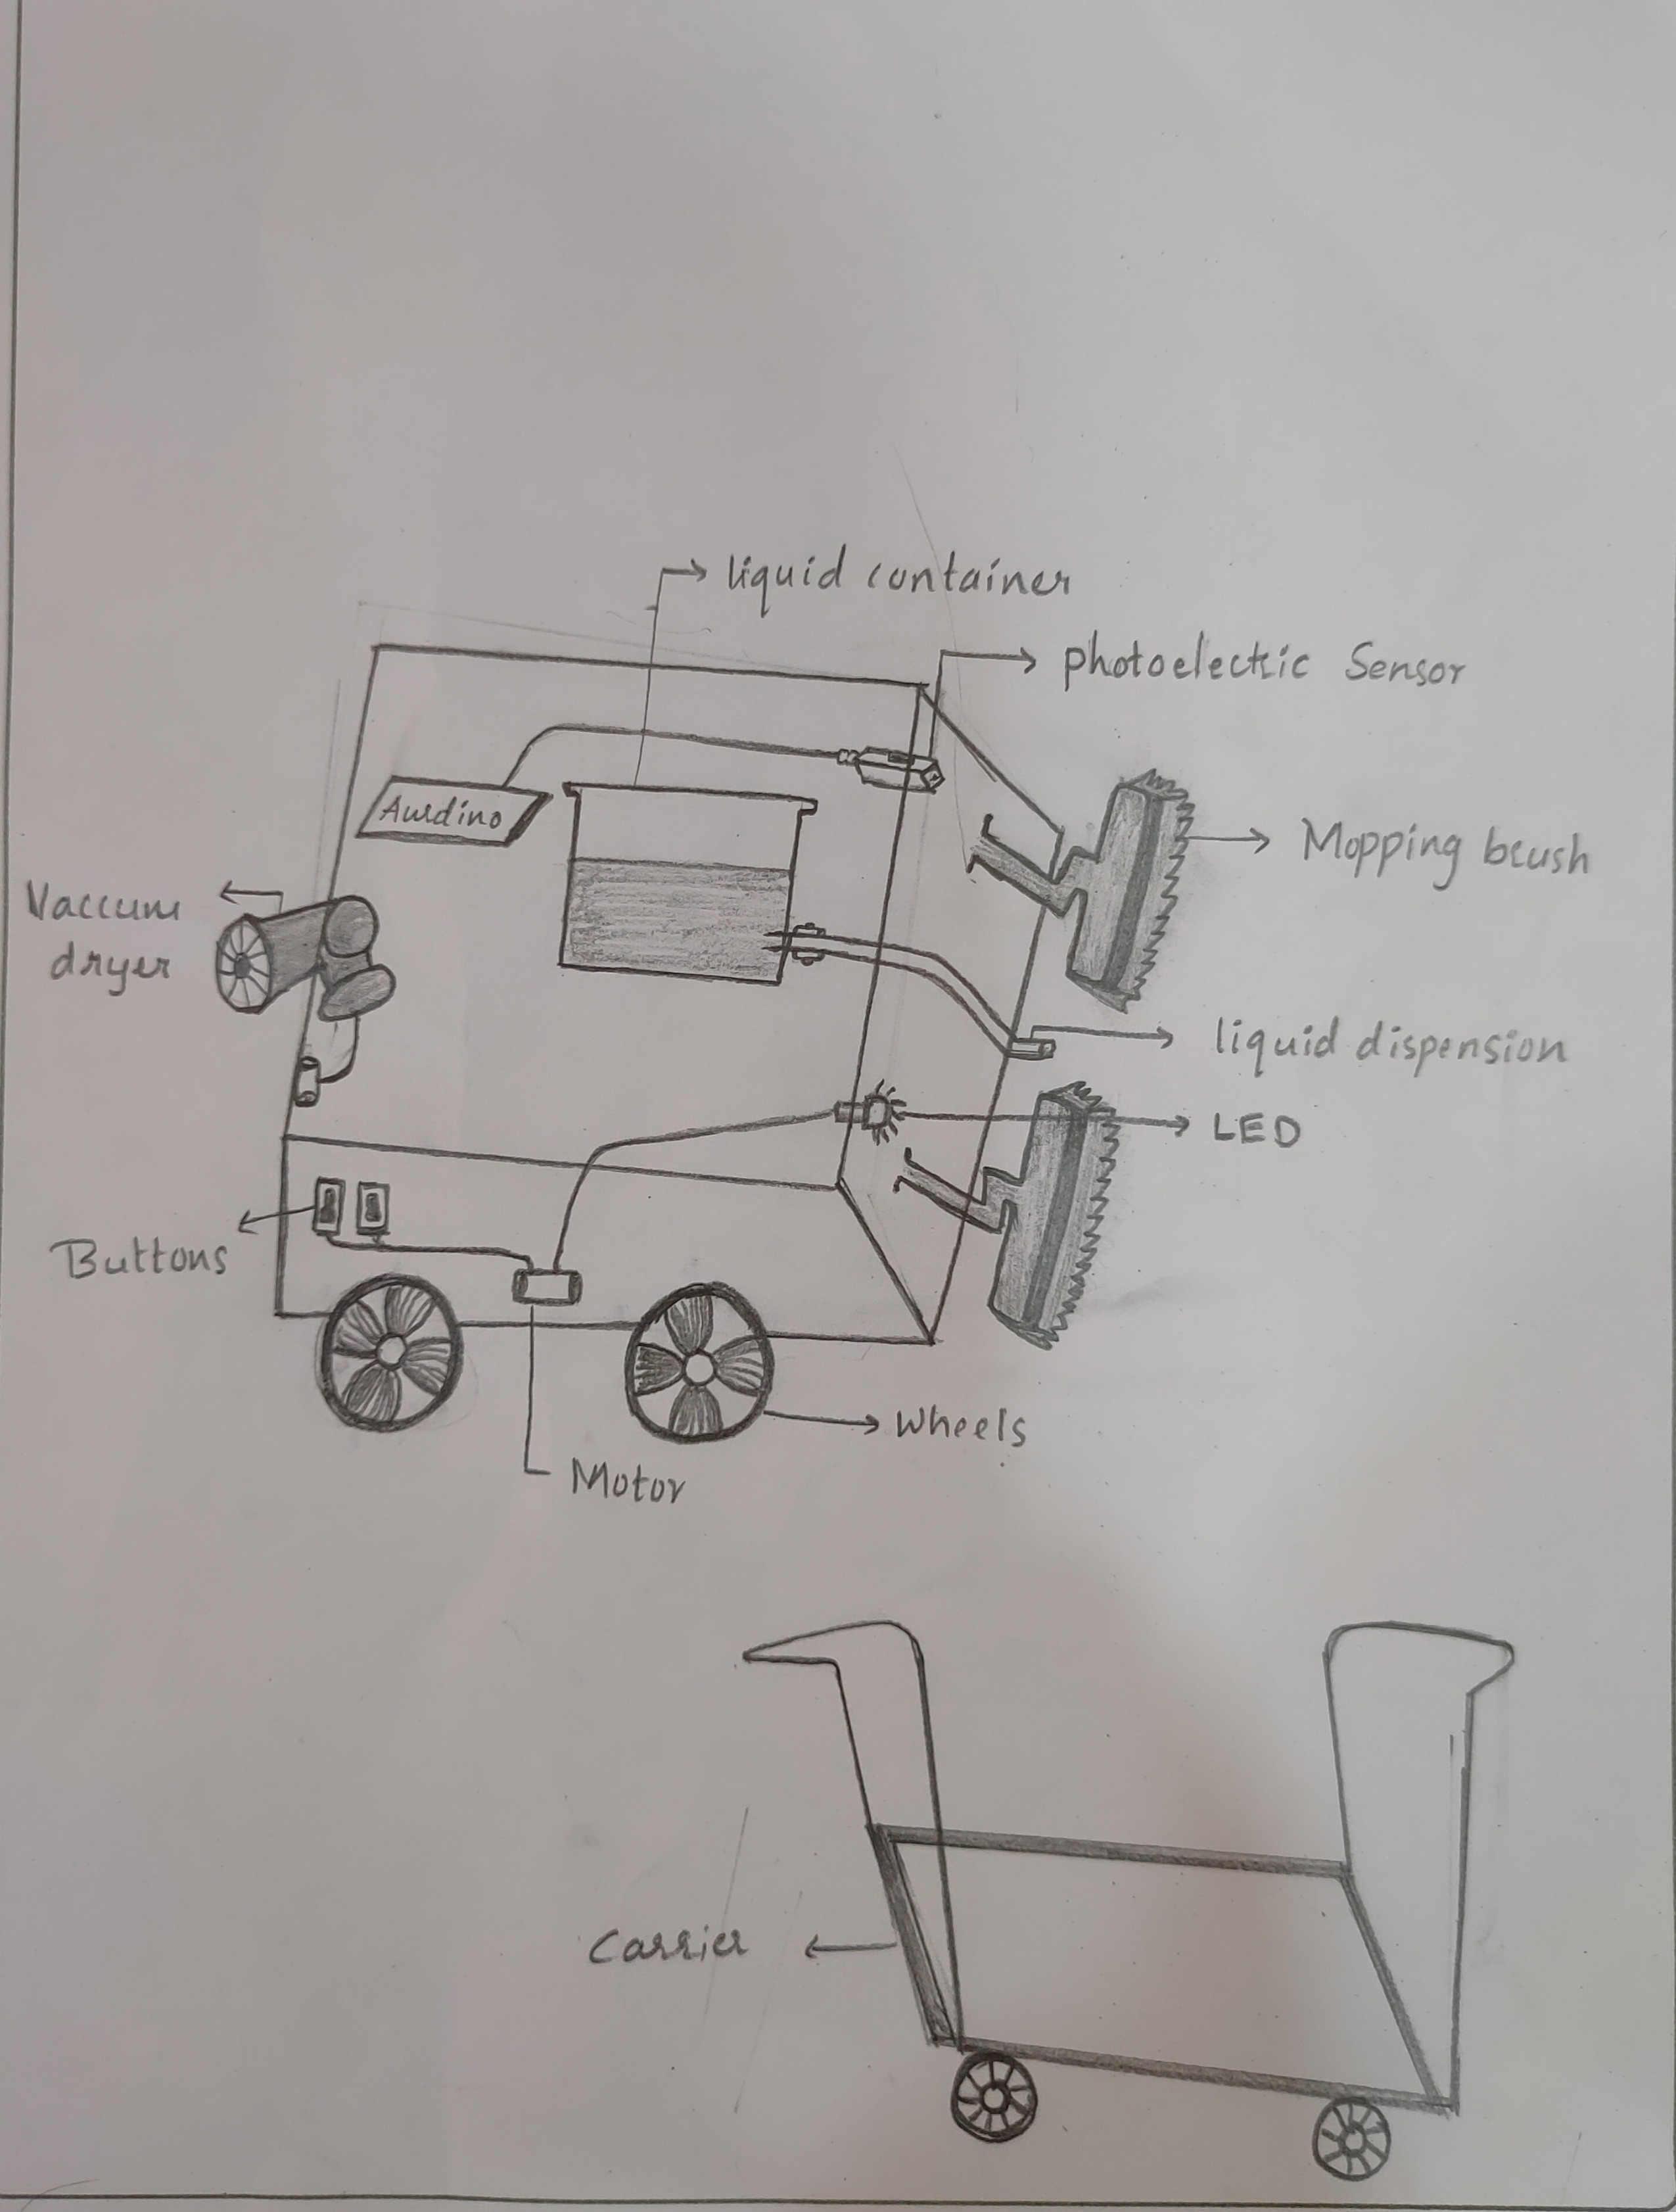 liquid container
photoelectric Sensor
Aurdino
Mopping brush
Vaccum
dryer
liquid dispension
LED
Buttons
Wheels
Motor
Carrier